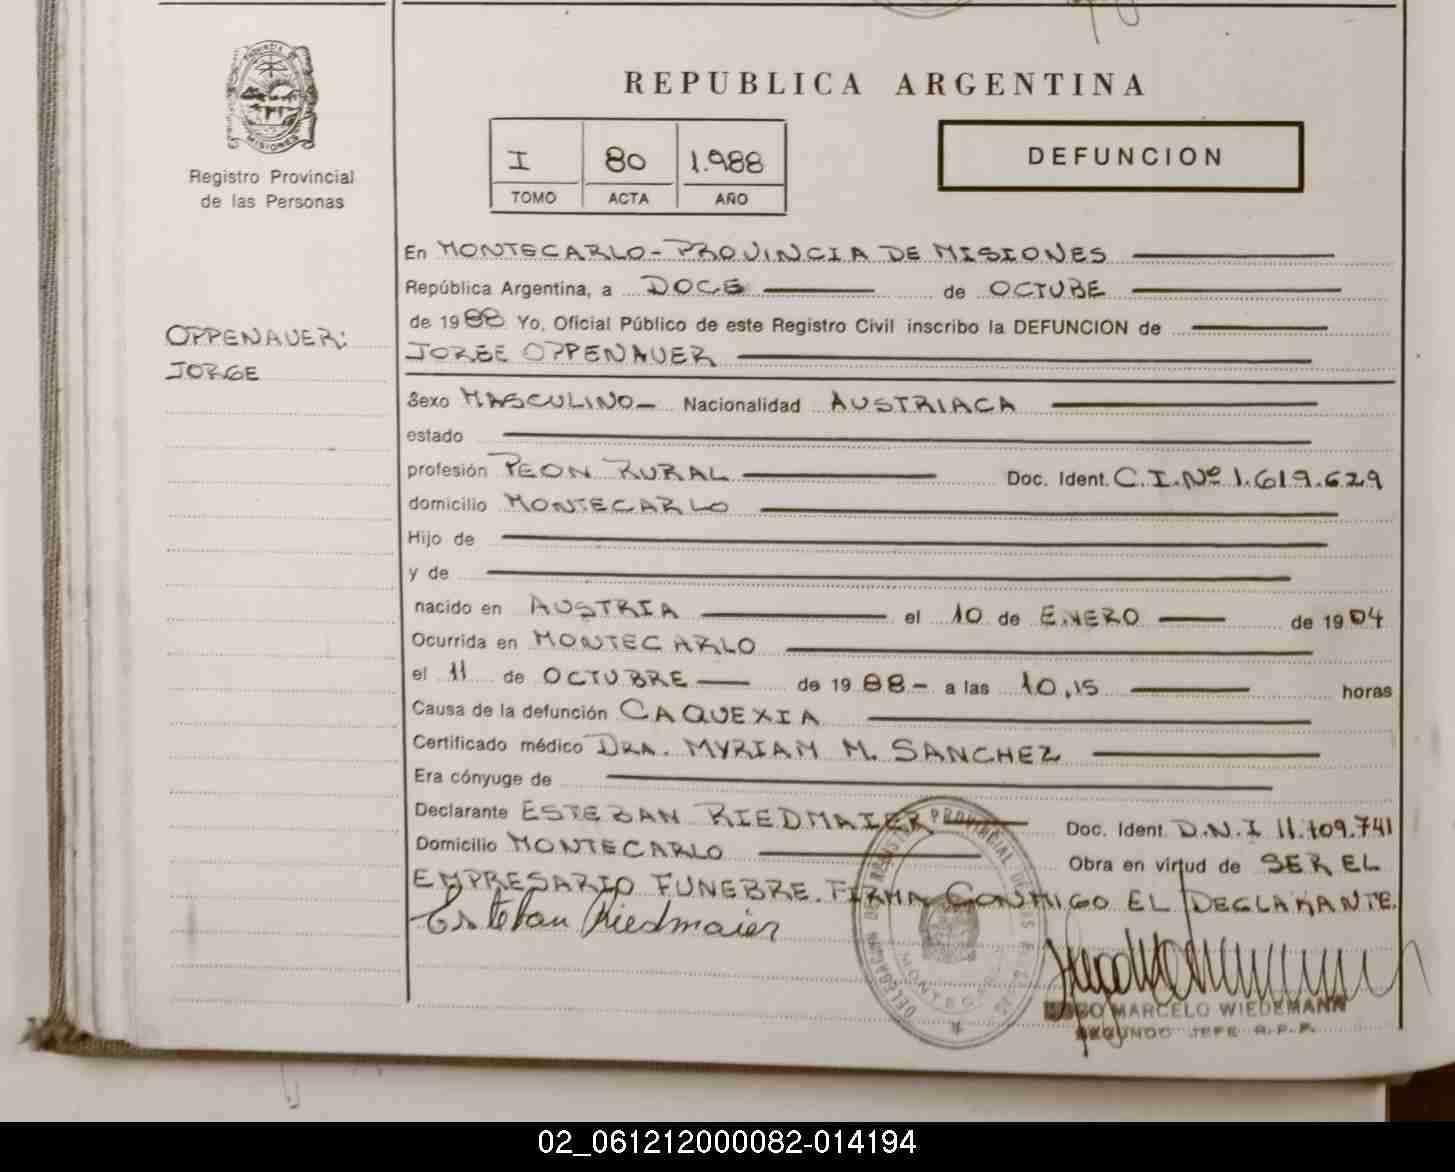 PROVINCIA DE MISIONES
Registro Provincial
de las Personas
OPPENAUER:
JORGE
REPUBLICA ARGENTINA
I 80 1.988
TOMO ACTA AÑO
DEFUNCION
En MONTECARLO-PROVINCIA DE MISIONES
República Argentina, a DOCE de OCTUBE
de 1988 Yo, Oficial Público de este Registro Civil inscribo la DEFUNCION de
JORGE OPPENAUER
Sexo MASCULINO- Nacionalidad AUSTRIACA
estado
profesión PEON RURAL Doc. Ident. C.I.Nº 1.619.629
domicilio MONTECARLO
Hijo de
y de
nacido en AUSTRIA el 10 de ENERO de 1904
Ocurrida en MONTECARLO
el 11 de OCTUBRE de 1988- a las 10,15 horas
Causa de la defunción CAQUEXIA
Certificado médico DRA. MYRIAM M. SANCHEZ
Era cónyuge de
Declarante ESTEBAN RIEDMAIER Doc. Ident. D.N.I 11.109.741
Domicilio MONTECARLO Obra en virtud de SER EL
EMPRESARIO FUNEBRE. FIRMA CONMIGO EL DECLARANTE.
Esteban Riedmaier
DELEGACION DEL REGISTRO PROVINCIAL DE LAS PERSONAS
MONTECARLO
HUGO MARCELO WIEDEMANN
SEGUNDO JEFE R.P.P.
02_061212000082-014194